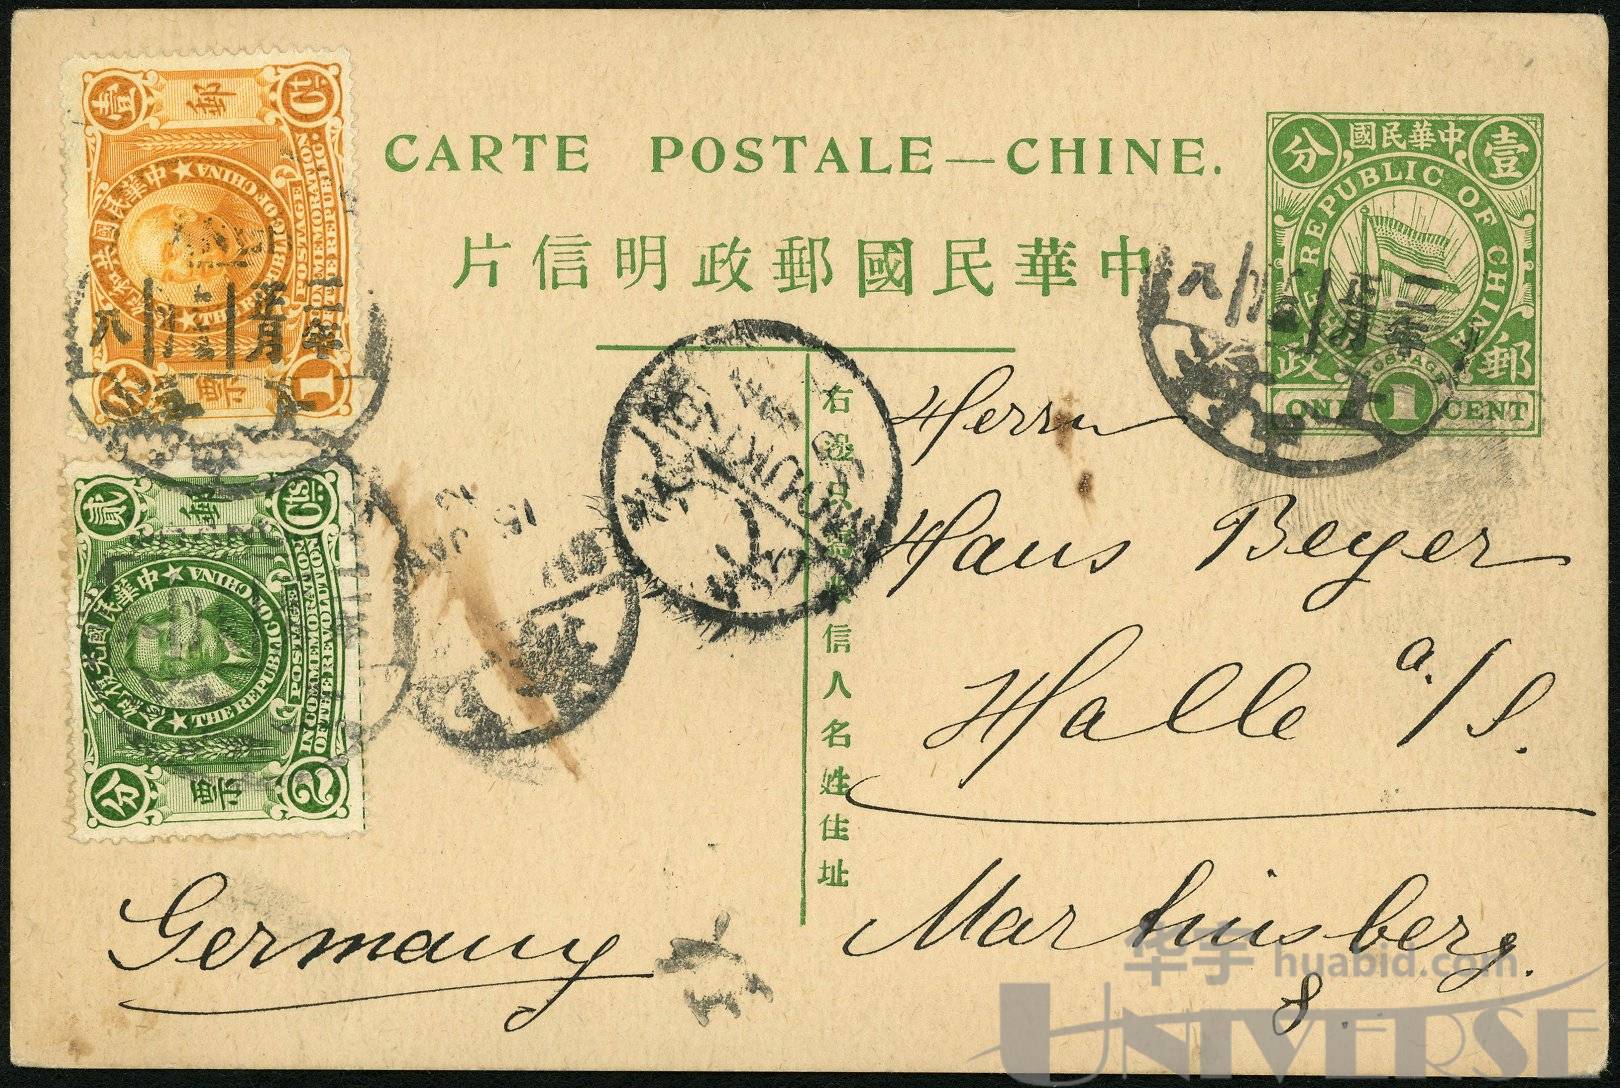 CARTE POSTALE—CHINE.
中華民國郵政明信片
壹 中華民國 分
REPUBLIC OF CHINA
POSTAGE
郵 政
ONE 1 CENT
二年
正月
八
右邊只寫收信人名姓住址
Herrn
Hans Beyer
Halle a./S.
Martinsberg.
8.
Germany
壹 郵 Ct.
中華民國共和紀念
THE REPUBLIC OF CHINA
IN COMMEMORATION
OF THE REVOLUTION
POSTAGE
分 票 1
二年
正月
八
貳 郵 Cts.
中華民國光復紀念
THE REPUBLIC OF CHINA
IN COMMEMORATION
OF THE REVOLUTION
POSTAGE
分 票 2
15 JAN
13
华宇 huabid.com
UNIVERSE